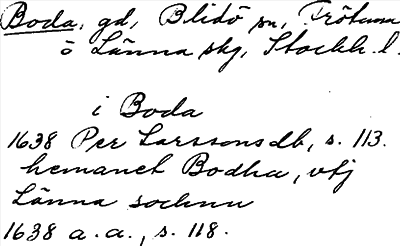 Boda, gd, Blidö sn, Frötuna
o Länna skg, Stockh. l.
i Boda
1638 Per Larssons db, s. 113.
hemanet Bodha, vtj
Länna sochnn
1638 a. a., s. 118.